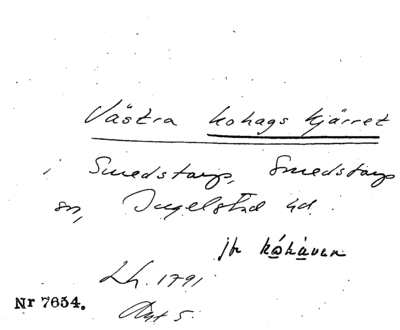 Västra Kohags Kjärret
i Smedstorp, Smedstorp
sn, Ingelstad hd.
jfr kóhåven
Lh. 1791
Akt 5.
Nr 7654.